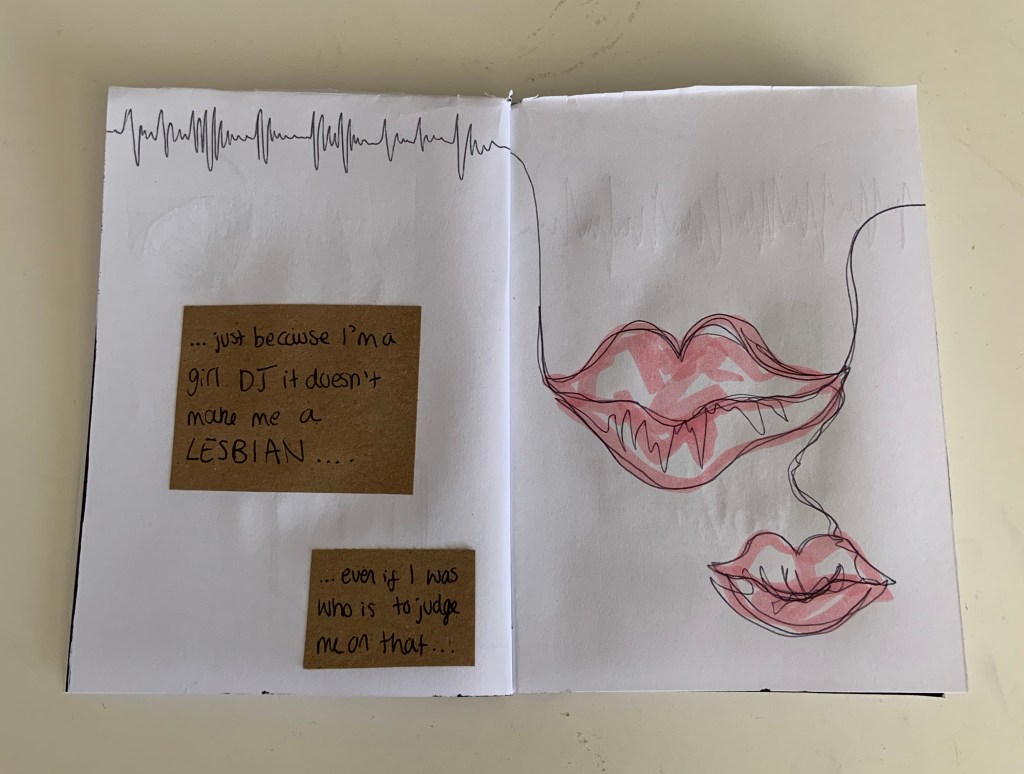 ... just because I'm a
girl DJ it doesn't
make me a
LESBIAN ....
... even if I was
who is to judge
me on that...